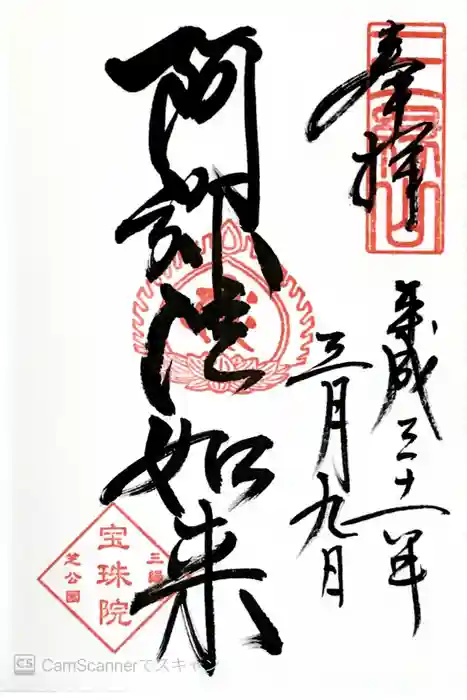 奉拝
三縁山
平成三十一年
三月九日
阿弥陀如来
三縁
宝珠院
芝公園
CS CamScannerでスキャン